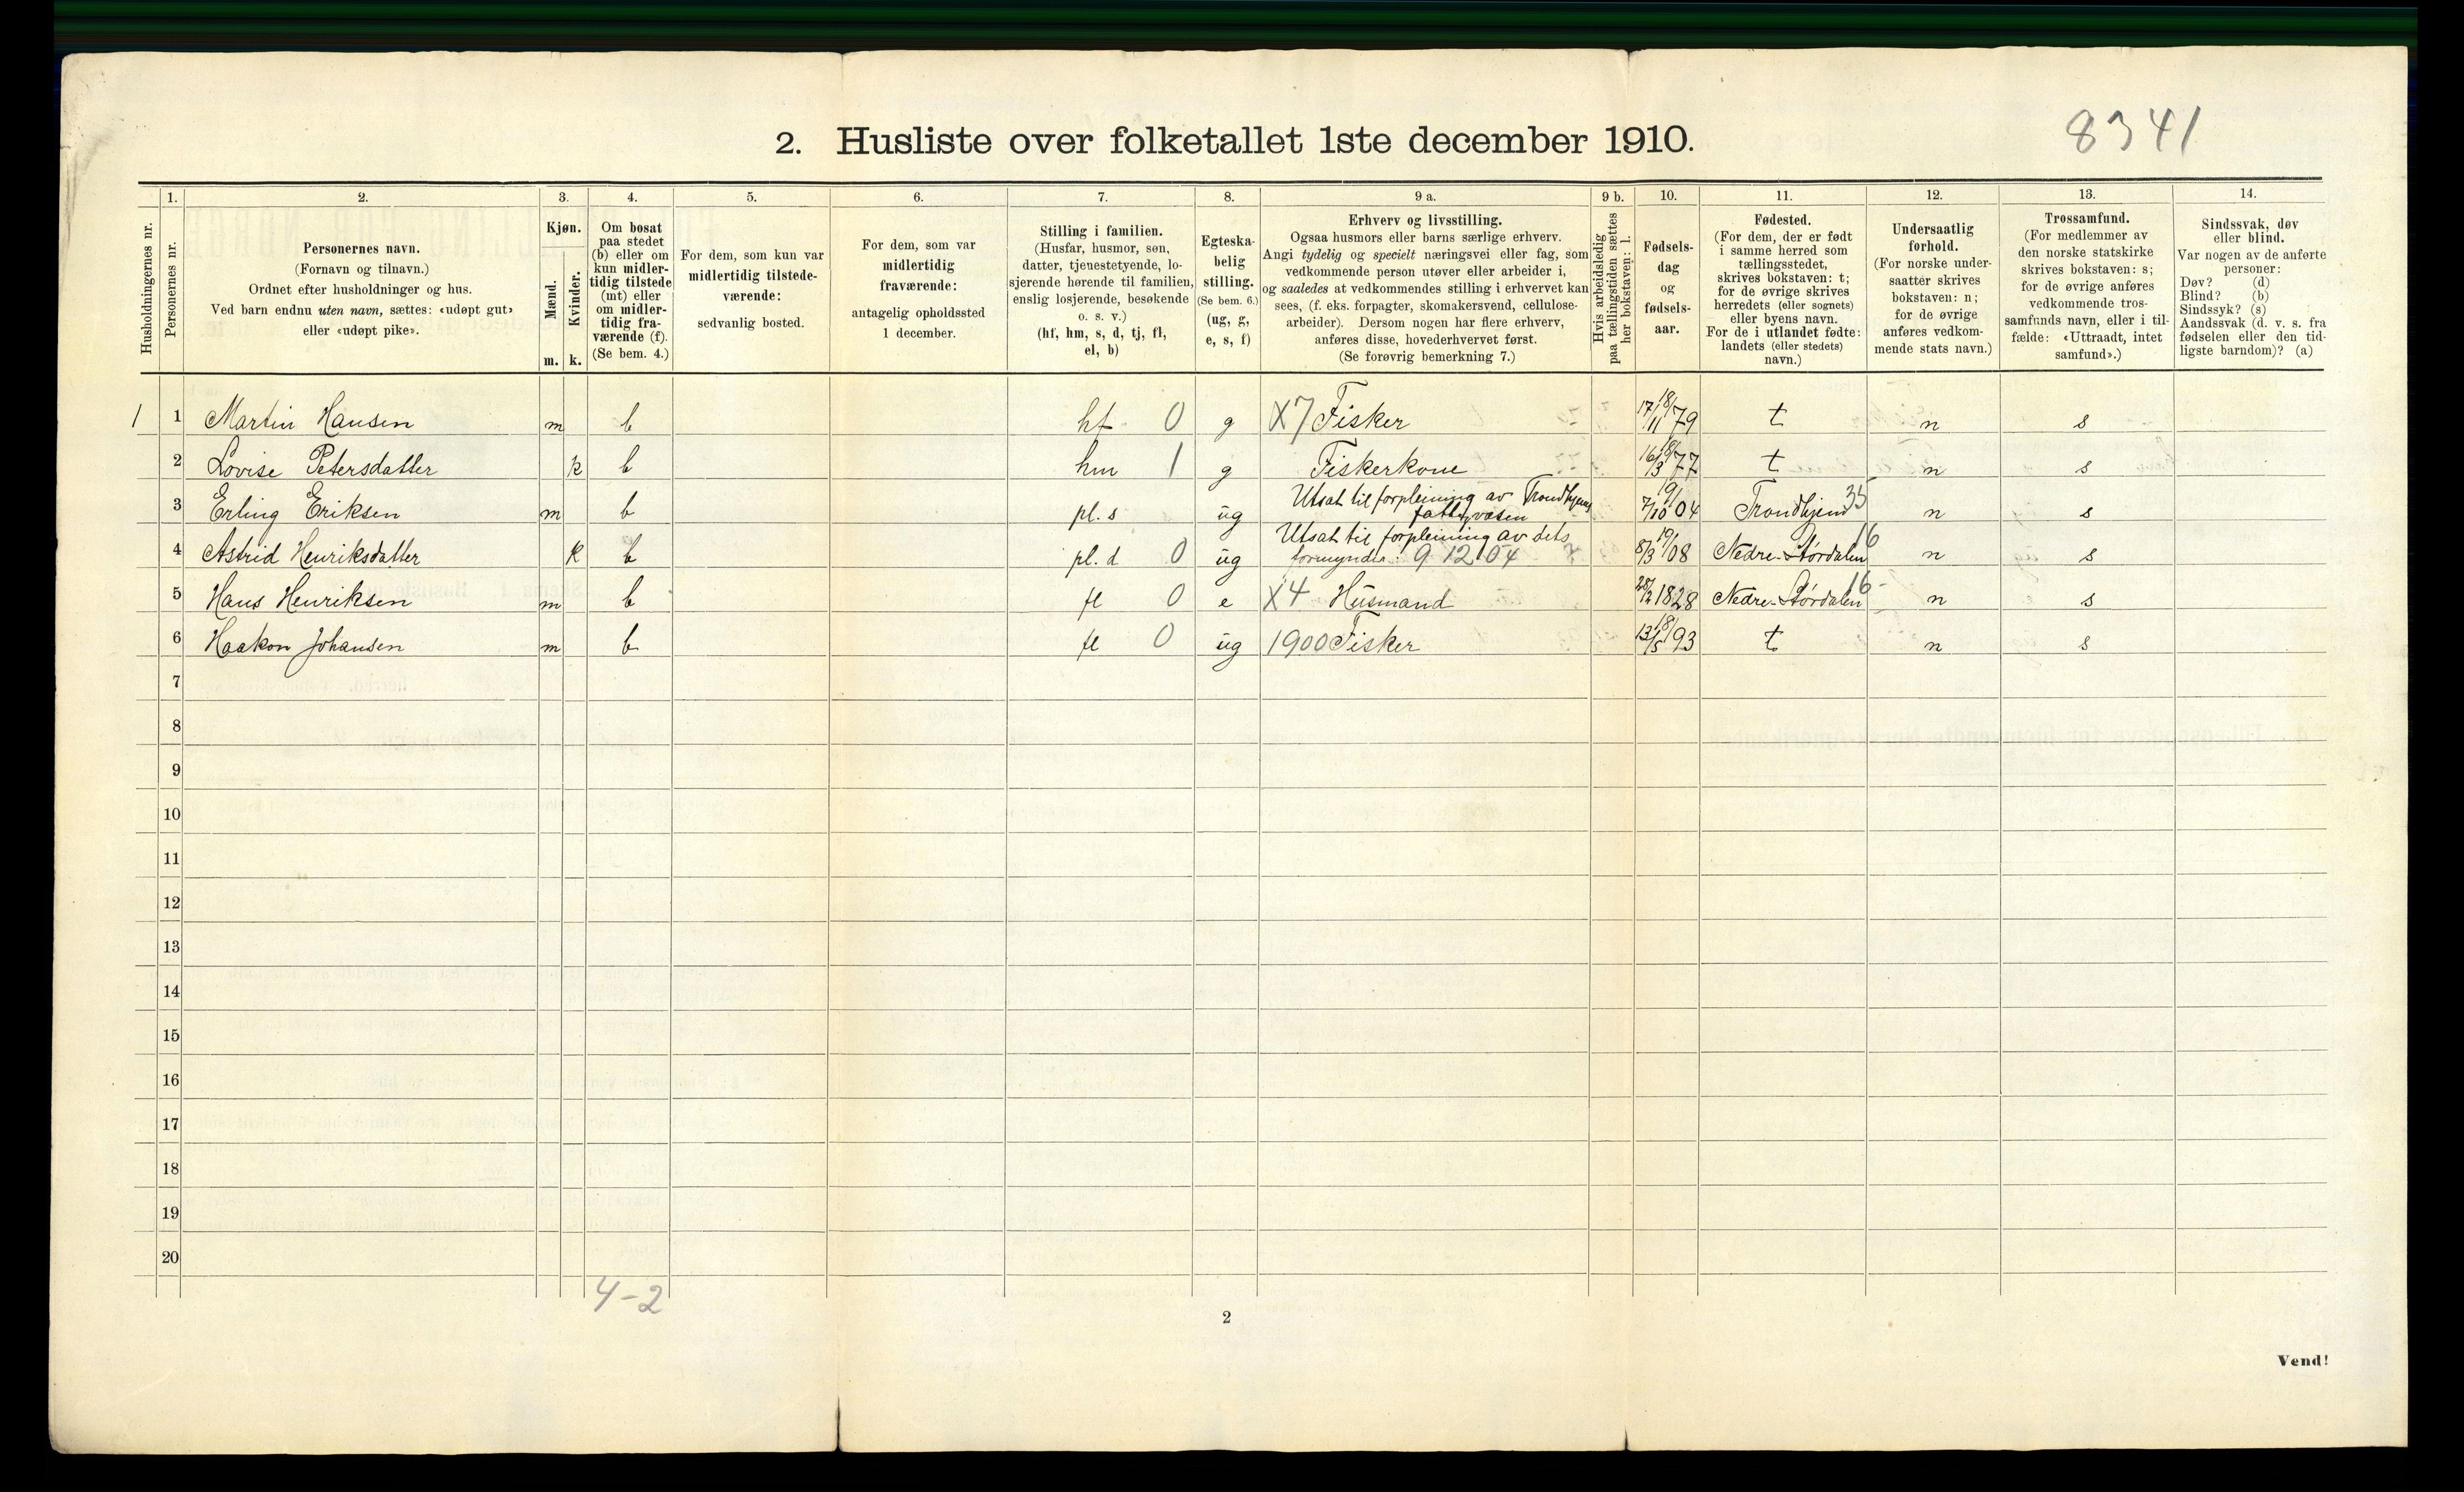 8341
2. Husliste over folketallet 1ste december 1910.
Husholdningernes nr.
1.
Personernes nr.
2.
Personernes navn.
(Fornavn og tilnavn.)
Ordnet efter husholdninger og hus.
Ved barn endnu uten navn, sættes: «udøpt gut»
eller «udøpt pike».
3.
Kjøn.
Mænd.
m.
Kvinder.
k.
4.
Om bosat
paa stedet
(b) eller om
kun midler-
tidig tilstede
(mt) eller
om midler-
tidig fra-
værende (f).
(Se bem. 4.)
5.
For dem, som kun var
midlertidig tilstede-
værende:
sedvanlig bosted.
6.
For dem, som var
midlertidig
fraværende:
antagelig opholdssted
1 december.
7.
Stilling i familien.
(Husfar, husmor, søn,
datter, tjenestetyende, lo-
sjerende hørende til familien,
enslig losjerende, besøkende
o. s. v.)
(hf, hm, s, d, tj, fl,
el, b)
8.
Egteska-
belig
stilling.
(Se bem. 6.)
(ug, g,
e, s, f)
9 a.
Erhverv og livsstilling.
Ogsaa husmors eller barns særlige erhverv.
Angi tydelig og specielt næringsvei eller fag, som
vedkommende person utøver eller arbeider i,
og saaledes at vedkommendes stilling i erhvervet kan
sees, (f. eks. forpagter, skomakersvend, cellulose-
arbeider). Dersom nogen har flere erhverv,
anføres disse, hovederhvervet først.
(Se forøvrig bemerkning 7.)
9 b.
Hvis arbeidsledig
paa tællingstiden sættes
her bokstaven: l.
10.
Fødsels-
dag
og
fødsels-
aar.
11.
Fødested.
(For dem, der er født
i samme herred som
tællingsstedet,
skrives bokstaven: t;
for de øvrige skrives
herredets (eller sognets)
eller byens navn.
For de i utlandet fødte:
landets (eller stedets)
navn.)
12.
Undersaatlig
forhold.
(For norske under-
saatter skrives
bokstaven: n;
for de øvrige
anføres vedkom-
mende stats navn.)
13.
Trossamfund.
(For medlemmer av
den norske statskirke
skrives bokstaven: s;
for de øvrige anføres
vedkommende tros-
samfunds navn, eller i til-
fælde: «Uttraadt, intet
samfund».)
14.
Sindssvak, døv
eller blind.
Var nogen av de anførte
personer:
Døv? (d)
Blind? (b)
Sindssyk? (s)
Aandssvak (d. v. s. fra
fødselen eller den tid-
ligste barndom)? (a)
1 1 Martin Hansen m b hf 0 g X7 Fisker 17/11 18/79 t n s
2 Lovise Petersdatter k b hm 1 g Fiskerkone 16/3 18/77 t n s
3 Erling Eriksen m b pl. s ug Utsat til forpleining av Trondhjems fattigvæsen 7/10 19/04 Trondhjem 35 n s
4 Astrid Henriksdatter k b pl. d 0 ug Utsat til forpleining av dets formynder: 9 12 04 8/3 19/08 Nedre-Størdalen 16 n s
5 Hans Henriksen m b fl 0 e X4 Husmand 28/2 1828 Nedre-Størdalen 16 n s
6 Haakon Johansen m b fl 0 ug 1900 Fisker 13/5 18/93 t n s
7
8
9
10
11
12
13
14
15
16
17
18
19
20
4-2
2
Vend!